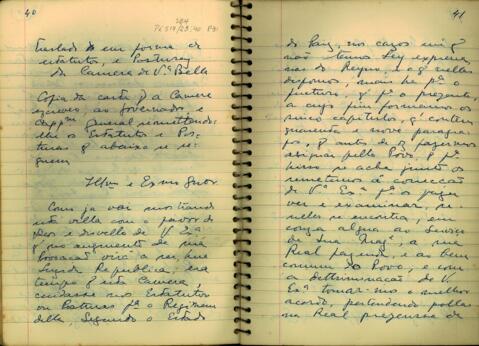 40
Treslado em forma de
estatutos, e Posturas
da Camera de V.ª Bella
Copia da carta q a Camera
escreveo ao Governador, e
Cap.^m General remettendo-
lhe os Estatutos e Pos-
turas q abaixo se se-
guem
Illmo e Exmo Snor
Como já vai mostrando
esta villa com o favor de
Deos e desvello de V. Ex.ª
q no augmento de sua
creação virá a ser hua
Luzida Republica, era
tempo q esta Camera,
cuidasse nos Estatutos
ou Posturas p.ª o Regimem
della, Segundo o Estado
41
do Paiz, nos cazos em q
não temos Ley expressa
nas do Reyno, e q nellas
dispomos, mais p.ª o
futuro, q p.ª o prezente
a cujo fim formamos os
sinco capitulos, q contem
quarenta e nove paragra-
pos, q antes de os fazermos
assignar pello Povo, q p.ª
hisso se acha junto os
remetemos á correcção
de V.ª Ex.ª p.ª os fazer
ver e examinar, se
nelles se encontra, em
couza algua ao Serviço
de Sua Mag.^e a sua
Real fazenda, e ao bem
commum do Povo, e com
a determinação de V.
Ex.ª tomar-mos o melhor
acordo, pertendendo pois
na Real prezensa de